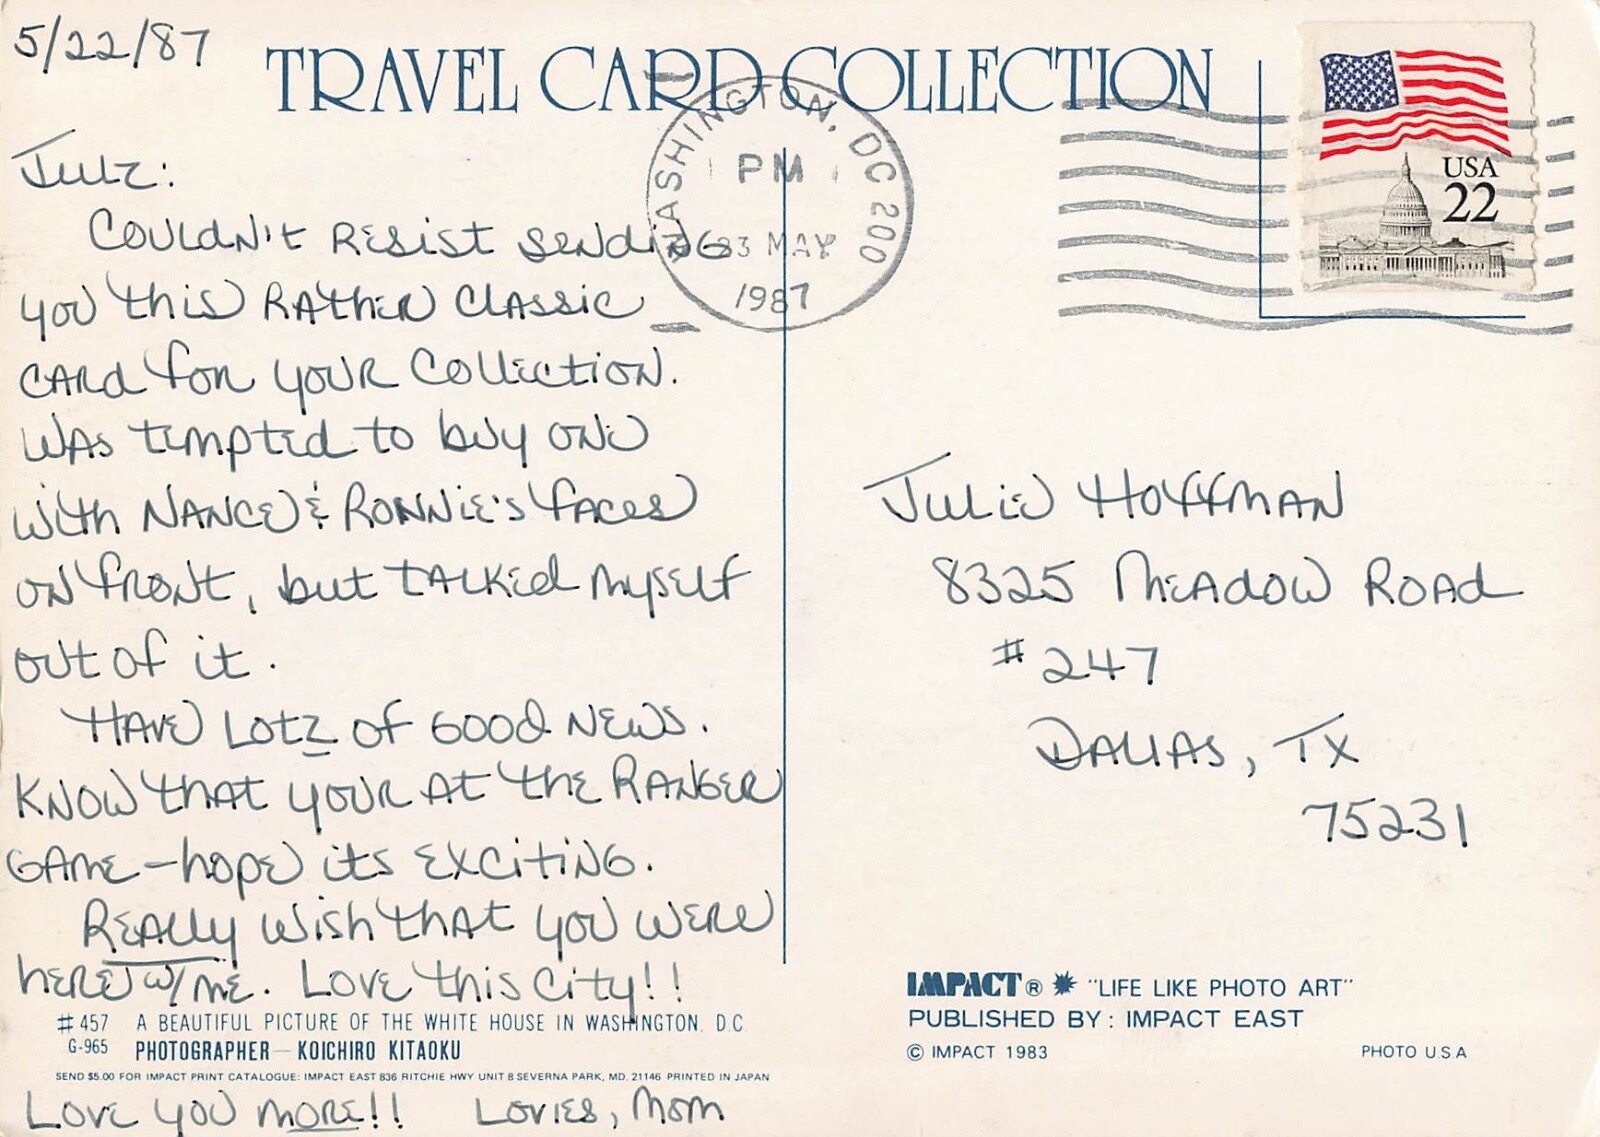 5/22/87
TRAVEL CARD COLLECTION
WASHINGTON, DC 200
PM
23 MAY
1987
USA
22
Julz:
Couldn't resist sending
you this rather classic
card for your collection.
Was tempted to buy one
with Nance & Ronnie's faces
on front, but talked myself
out of it.
Have lotz of good news.
Know that your at the Ranger
game – hope its exciting.
Really wish that you were
here w/me. Love this city!!
#457 A BEAUTIFUL PICTURE OF THE WHITE HOUSE IN WASHINGTON. D.C
G-965 PHOTOGRAPHER — KOICHIRO KITAOKU
SEND $5.00 FOR IMPACT PRINT CATALOGUE: IMPACT EAST 836 RITCHIE HWY UNIT 8 SEVERNA PARK, MD. 21146 PRINTED IN JAPAN
Love you more!! Lovies, Mom
Julie Hoffman
8325 Meadow Road
#247
Dallas, TX
75231
IMPACT® "LIFE LIKE PHOTO ART"
PUBLISHED BY: IMPACT EAST
© IMPACT 1983 PHOTO U.S.A